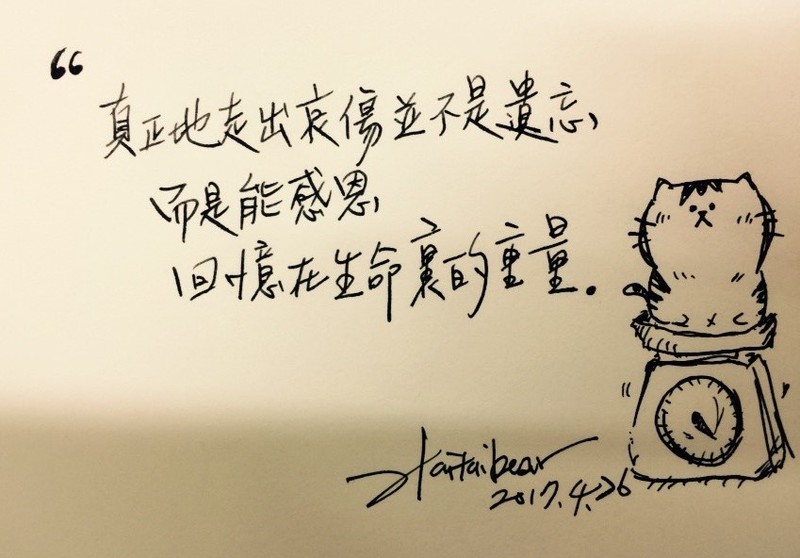 “真正地走出哀傷並不是遺忘,
而是能感恩,
回憶在生命裏的重量。
2017.4.26